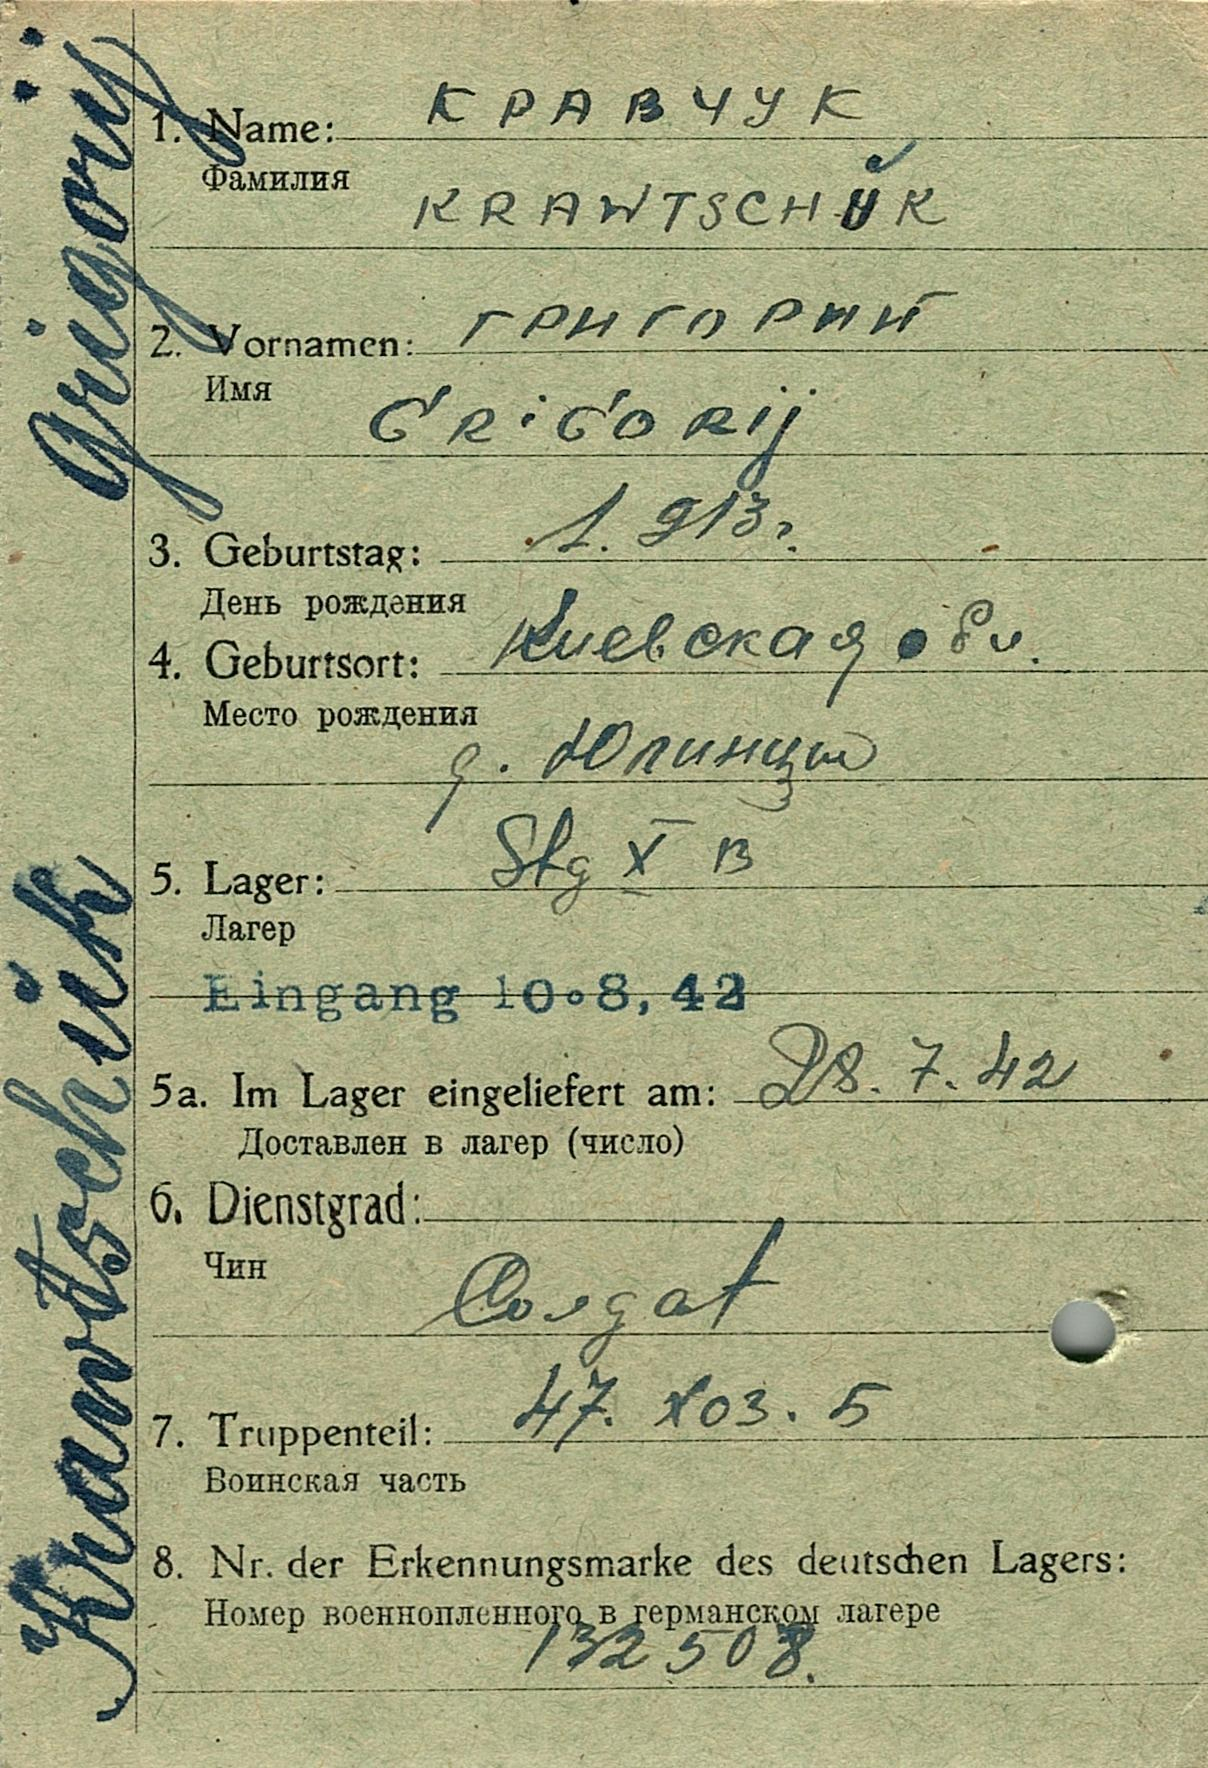 Krawtschük Grigorij
1. Name: КРАВЧУК
Фамилия
KRAWTSCHUK
2. Vornamen: ГРИГОРИЙ
Имя
GRiGORij
3. Geburtstag: 1.913г
День рождения
4. Geburtsort: Киевская обл.
Место рождения
д. Юлинцы
5. Lager: Stg X B
Лагер
Eingang 10.8,42
5a. Im Lager eingeliefert am: 28.7.42
Доставлен в лагер (число)
6. Dienstgrad:
Чин
Солдат
7. Truppenteil: 47. хоз. 5
Воинская часть
8. Nr. der Erkennungsmarke des deutschen Lagers:
Номер военнопленного в германском лагере
132508.